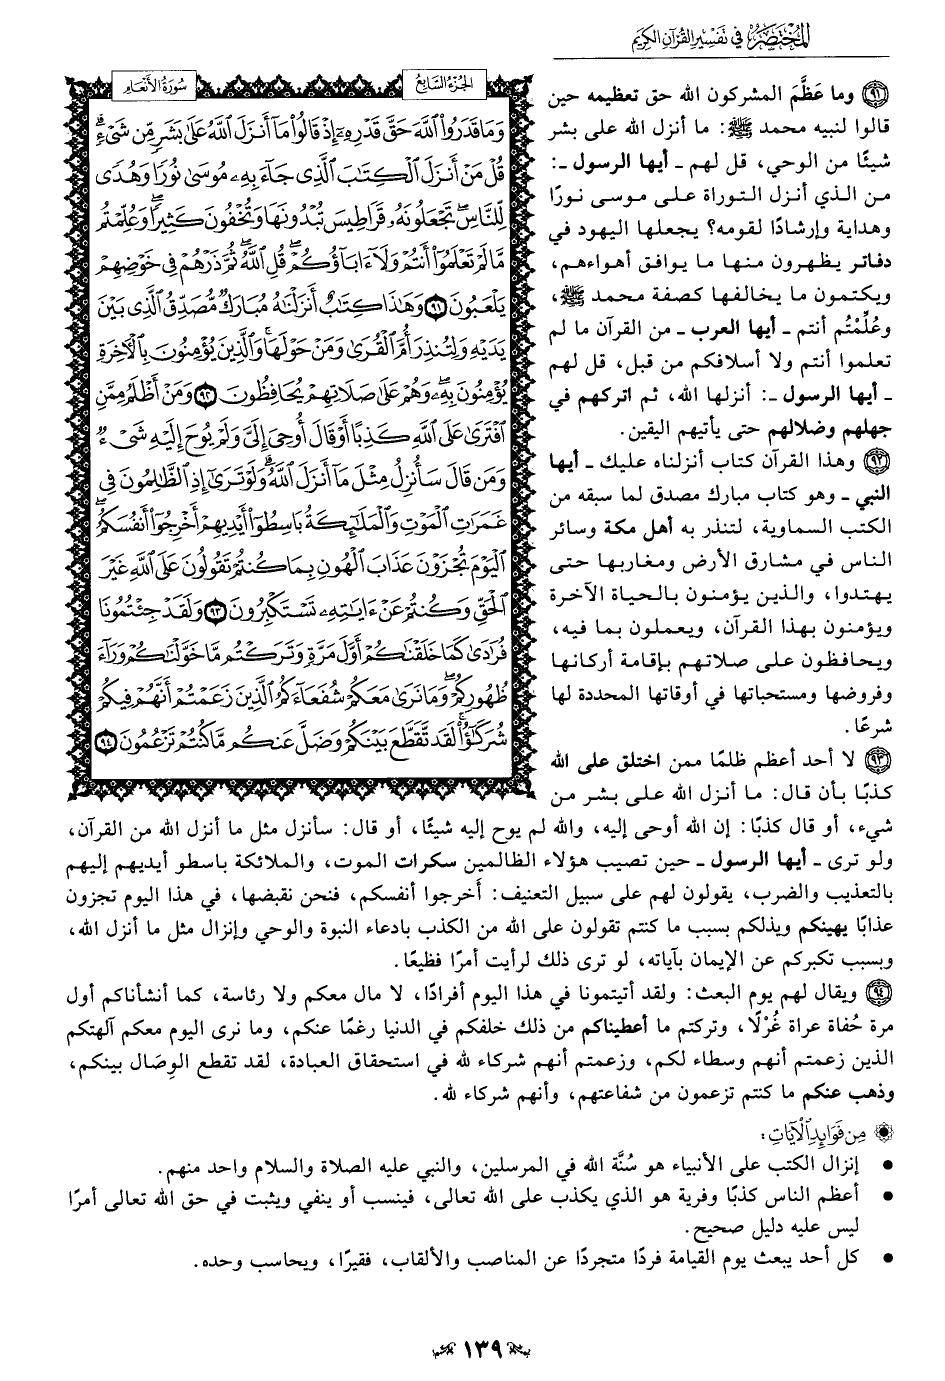 المختصر في تفسير القرآن الكريم
الجزء السابع
سورة الأنعام
وَمَا قَدَرُوا۟ ٱللَّهَ حَقَّ قَدْرِهِۦٓ إِذْ قَالُوا۟ مَآ أَنزَلَ ٱللَّهُ عَلَىٰ بَشَرٍ مِّن شَىْءٍ ۗ
قُلْ مَنْ أَنزَلَ ٱلْكِتَٰبَ ٱلَّذِى جَآءَ بِهِۦ مُوسَىٰ نُورًا وَهُدًى
لِّلنَّاسِ ۖ تَجْعَلُونَهُۥ قَرَاطِيسَ تُبْدُونَهَا وَتُخْفُونَ كَثِيرًا ۖ وَعُلِّمْتُم
مَّا لَمْ تَعْلَمُوٓا۟ أَنتُمْ وَلَآ ءَابَآؤُكُمْ ۖ قُلِ ٱللَّهُ ۖ ثُمَّ ذَرْهُمْ فِى خَوْضِهِمْ
يَلْعَبُونَ ٩١ وَهَٰذَا كِتَٰبٌ أَنزَلْنَٰهُ مُبَارَكٌ مُّصَدِّقُ ٱلَّذِى بَيْنَ
يَدَيْهِ وَلِتُنذِرَ أُمَّ ٱلْقُرَىٰ وَمَنْ حَوْلَهَا ۚ وَٱلَّذِينَ يُؤْمِنُونَ بِٱلْءَاخِرَةِ
يُؤْمِنُونَ بِهِۦ ۖ وَهُمْ عَلَىٰ صَلَاتِهِمْ يُحَافِظُونَ ٩٢ وَمَنْ أَظْلَمُ مِمَّنِ
ٱفْتَرَىٰ عَلَى ٱللَّهِ كَذِبًا أَوْ قَالَ أُوحِىَ إِلَىَّ وَلَمْ يُوحَ إِلَيْهِ شَىْءٌ
وَمَن قَالَ سَأُنزِلُ مِثْلَ مَآ أَنزَلَ ٱللَّهُ ۗ وَلَوْ تَرَىٰٓ إِذِ ٱلظَّٰلِمُونَ فِى
غَمَرَٰتِ ٱلْمَوْتِ وَٱلْمَلَٰٓئِكَةُ بَاسِطُوٓا۟ أَيْدِيهِمْ أَخْرِجُوٓا۟ أَنفُسَكُمُ ۖ
ٱلْيَوْمَ تُجْزَوْنَ عَذَابَ ٱلْهُونِ بِمَا كُنتُمْ تَقُولُونَ عَلَى ٱللَّهِ غَيْرَ
ٱلْحَقِّ وَكُنتُمْ عَنْ ءَايَٰتِهِۦ تَسْتَكْبِرُونَ ٩٣ وَلَقَدْ جِئْتُمُونَا
فُرَٰدَىٰ كَمَا خَلَقْنَٰكُمْ أَوَّلَ مَرَّةٍ وَتَرَكْتُم مَّا خَوَّلْنَٰكُمْ وَرَآءَ
ظُهُورِكُمْ ۖ وَمَا نَرَىٰ مَعَكُمْ شُفَعَآءَكُمُ ٱلَّذِينَ زَعَمْتُمْ أَنَّهُمْ فِيكُمْ
شُرَكَٰٓؤُا۟ ۚ لَقَد تَّقَطَّعَ بَيْنَكُمْ وَضَلَّ عَنكُم مَّا كُنتُمْ تَزْعُمُونَ ٩٤
٩١ وما عَظَّمَ المشركون الله حق تعظيمه حين
قالوا لنبيه محمد ﷺ: ما أنزل الله على بشر
شيئًا من الوحي، قل لهم ـ أيها الرسول ـ:
من الذي أنزل التوراة على موسى نورًا
وهداية وإرشادًا لقومه؟ يجعلها اليهود في
دفاتر يظهرون منها ما يوافق أهواءهم،
ويكتمون ما يخالفها كصفة محمد ﷺ،
وعُلِّمْتُم أنتم ـ أيها العرب ـ من القرآن ما لم
تعلموا أنتم ولا أسلافكم من قبل، قل لهم
ـ أيها الرسول ـ: أنزلها الله، ثم اتركهم في
جهلهم وضلالهم حتى يأتيهم اليقين.
٩٢ وهذا القرآن كتاب أنزلناه عليك ـ أيها
النبي ـ وهو كتاب مبارك مصدق لما سبقه من
الكتب السماوية، لتنذر به أهل مكة وسائر
الناس في مشارق الأرض ومغاربها حتى
يهتدوا، والذين يؤمنون بالحياة الآخرة
ويؤمنون بهذا القرآن، ويعملون بما فيه،
ويحافظون على صلاتهم بإقامة أركانها
وفروضها ومستحباتها في أوقاتها المحددة لها
شرعًا.
٩٣ لا أحد أعظم ظلمًا ممن اختلق على الله
كذبًا بأن قال: ما أنزل الله على بشر من
شيء، أو قال كذبًا: إن الله أوحى إليه، والله لم يوح إليه شيئًا، أو قال: سأنزل مثل ما أنزل الله من القرآن،
ولو ترى ـ أيها الرسول ـ حين تصيب هؤلاء الظالمين سكرات الموت، والملائكة باسطو أيديهم إليهم
بالتعذيب والضرب، يقولون لهم على سبيل التعنيف: أخرجوا أنفسكم، فنحن نقبضها، في هذا اليوم تجزون
عذابًا يهينكم ويذلكم بسبب ما كنتم تقولون على الله من الكذب بادعاء النبوة والوحي وإنزال مثل ما أنزل الله،
وبسبب تكبركم عن الإيمان بآياته، لو ترى ذلك لرأيت أمرًا فظيعًا.
٩٤ ويقال لهم يوم البعث: ولقد أتيتمونا في هذا اليوم أفرادًا، لا مال معكم ولا رئاسة، كما أنشأناكم أول
مرة حُفاة عراة غُرْلًا، وتركتم ما أعطيناكم من ذلك خلفكم في الدنيا رغمًا عنكم، وما نرى اليوم معكم آلهتكم
الذين زعمتم أنهم وسطاء لكم، وزعمتم أنهم شركاء لله في استحقاق العبادة، لقد تقطع الوِصَال بينكم،
وذهب عنكم ما كنتم تزعمون من شفاعتهم، وأنهم شركاء لله.
من فوائد الآيات:
• إنزال الكتب على الأنبياء هو سُنَّة الله في المرسلين، والنبي عليه الصلاة والسلام واحد منهم.
• أعظم الناس كذبًا وفرية هو الذي يكذب على الله تعالى، فينسب أو ينفي ويثبت في حق الله تعالى أمرًا
ليس عليه دليل صحيح.
• كل أحد يبعث يوم القيامة فردًا متجردًا عن المناصب والألقاب، فقيرًا، ويحاسب وحده.
١٣٩